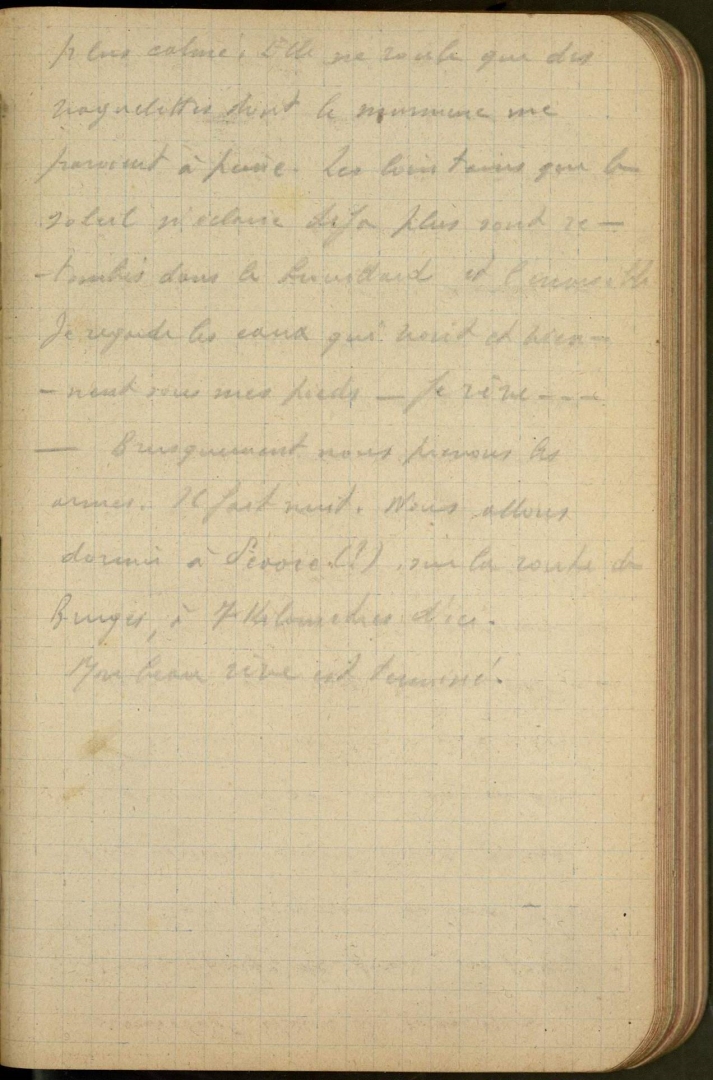 plus calme. Elle ne roule que des
vaguelettes dont le murmure me
parvient à peine. Les lointains que le
soleil n'éclaire déjà plus sont re-
-tombés dans le brouillard et
Je regarde les eaux qui vont et vien-
-nent sous mes pieds — Je rêve ---
— Brusquement nous prenons les
armes. Il fait nuit. Nous allons
dormir à (?), sur la route de
Bruges, à 7 Kilomètres d'ici.
Mon beau rêve est terminé.